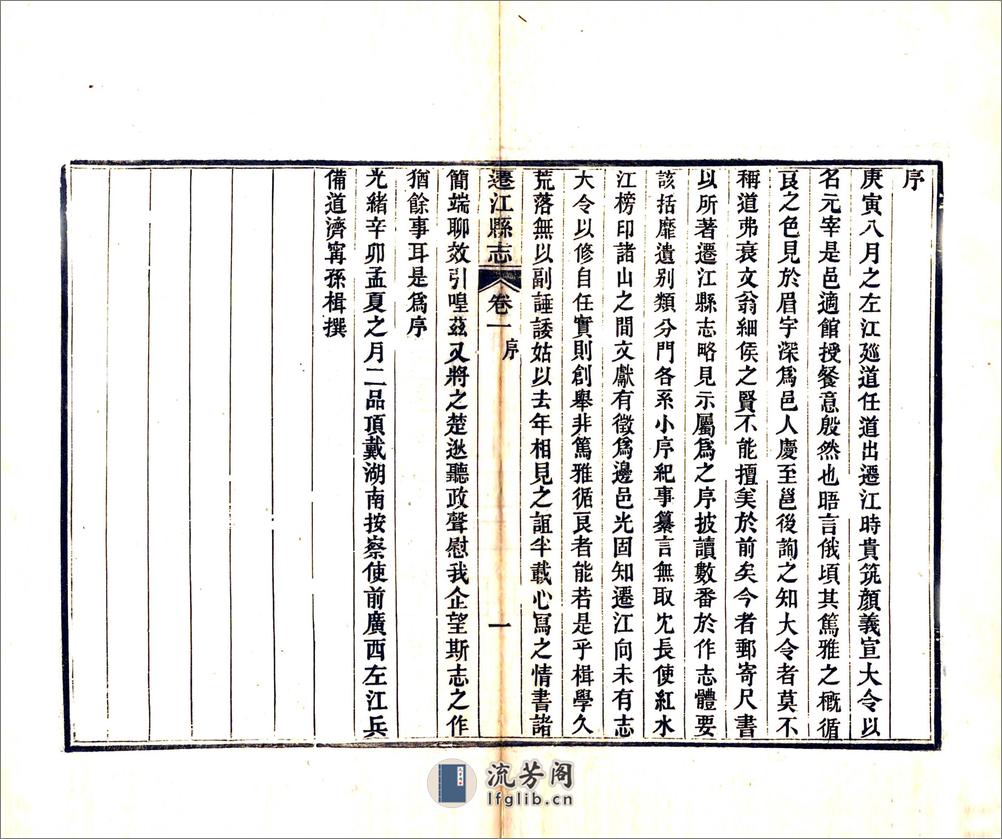 序
庚寅八月之左江廵道任道出遷江時貴筑顔義宣大令以
名元宰是邑適館授餐意殷然也晤言俄頃其篤雅之槪循
良之色見於眉宇深爲邑人慶至邕後詢之知大令者莫不
稱道弗衰文翁細侯之賢不能擅美於前矣今者郵寄尺書
以所著遷江縣志略見示屬爲之序披讀數番於作志體要
該括靡遺别類分門各系小序紀事纂言無取冗長使紅水
江榜印諸山之間文獻有徵爲邊邑光固知遷江向未有志
大令以修自任實則創舉非篤雅循良者能若是乎楫學久
荒落無以副諈諉姑以去年相見之誼半載心寫之情書諸
遷江縣志 卷一 序 一
簡端聊效引喤茲又將之楚逖聽政聲慰我企望斯志之作
猶餘事耳是爲序
光緒辛卯孟夏之月二品頂戴湖南按察使前廣西左江兵
備道濟寗孫楫撰
流芳阁
lfglib.cn